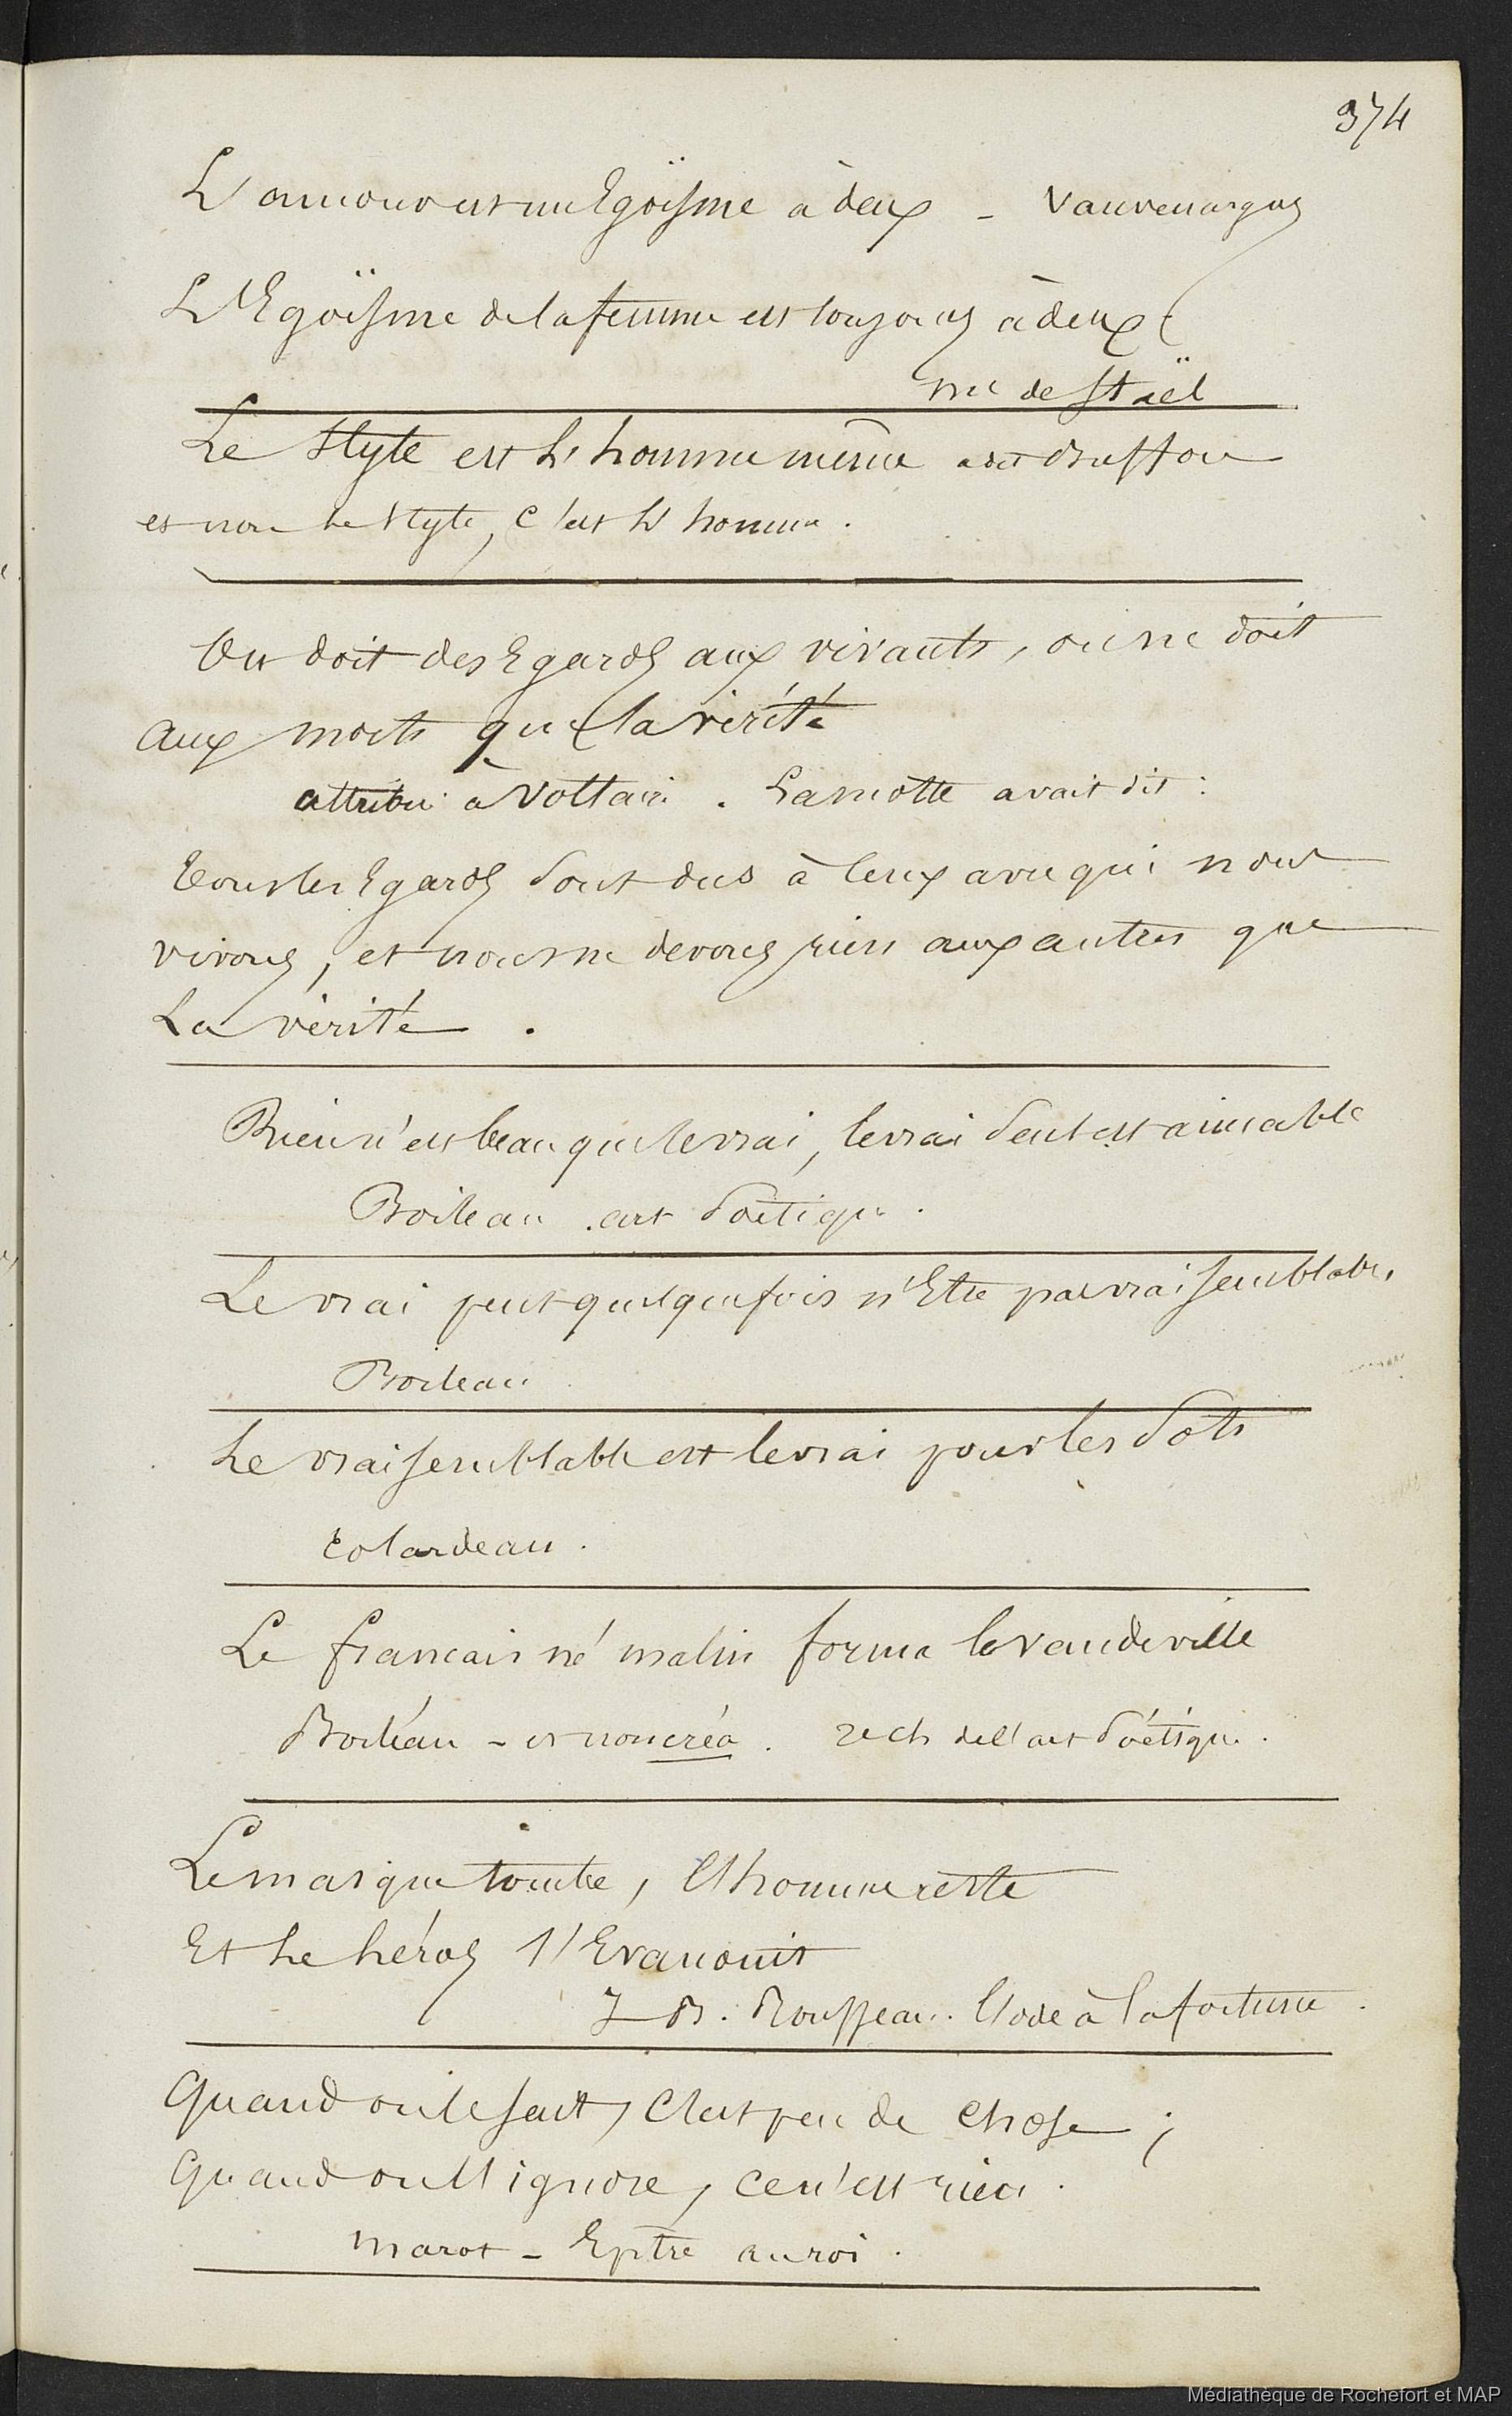 374
L'amour est un Egoïsme à deux - Vauvenargues
L'Egoïsme de la femme est toujours à deux
Me de Staël
Le style est l'homme même a dit Buffon
et non le style, c'est l'homme.
On doit des Egards aux vivants, on ne doit
aux morts que la vérité
attribué à Voltaire. Lamotte avait dit :
Tous les Egards sont dus à ceux avec qui nous
vivons, et nous ne devons rien aux autres que
La vérité.
Rien n'est beau que le vrai, le vrai seul est aimable
Boileau. art Poétique.
Le vrai peut quelquefois n'Etre pas vraisemblable,
Boileau
Le vraisemblable est le vrai pour les Sots
Colardeau.
Le francais né malin forma le vaudeville
Boiléau - et non créa. 2e ch de l'art Poétique.
Le masque tombe, l'homme reste
Et le héros s'Evanouit
J B. Rousseau. l'ode à la fortune.
Quand on le sait, c'est peu de chose ;
Quand on l'ignore, ce n'est rien.
Marot - Epitre au roi.
Médiathèque de Rochefort et MAP